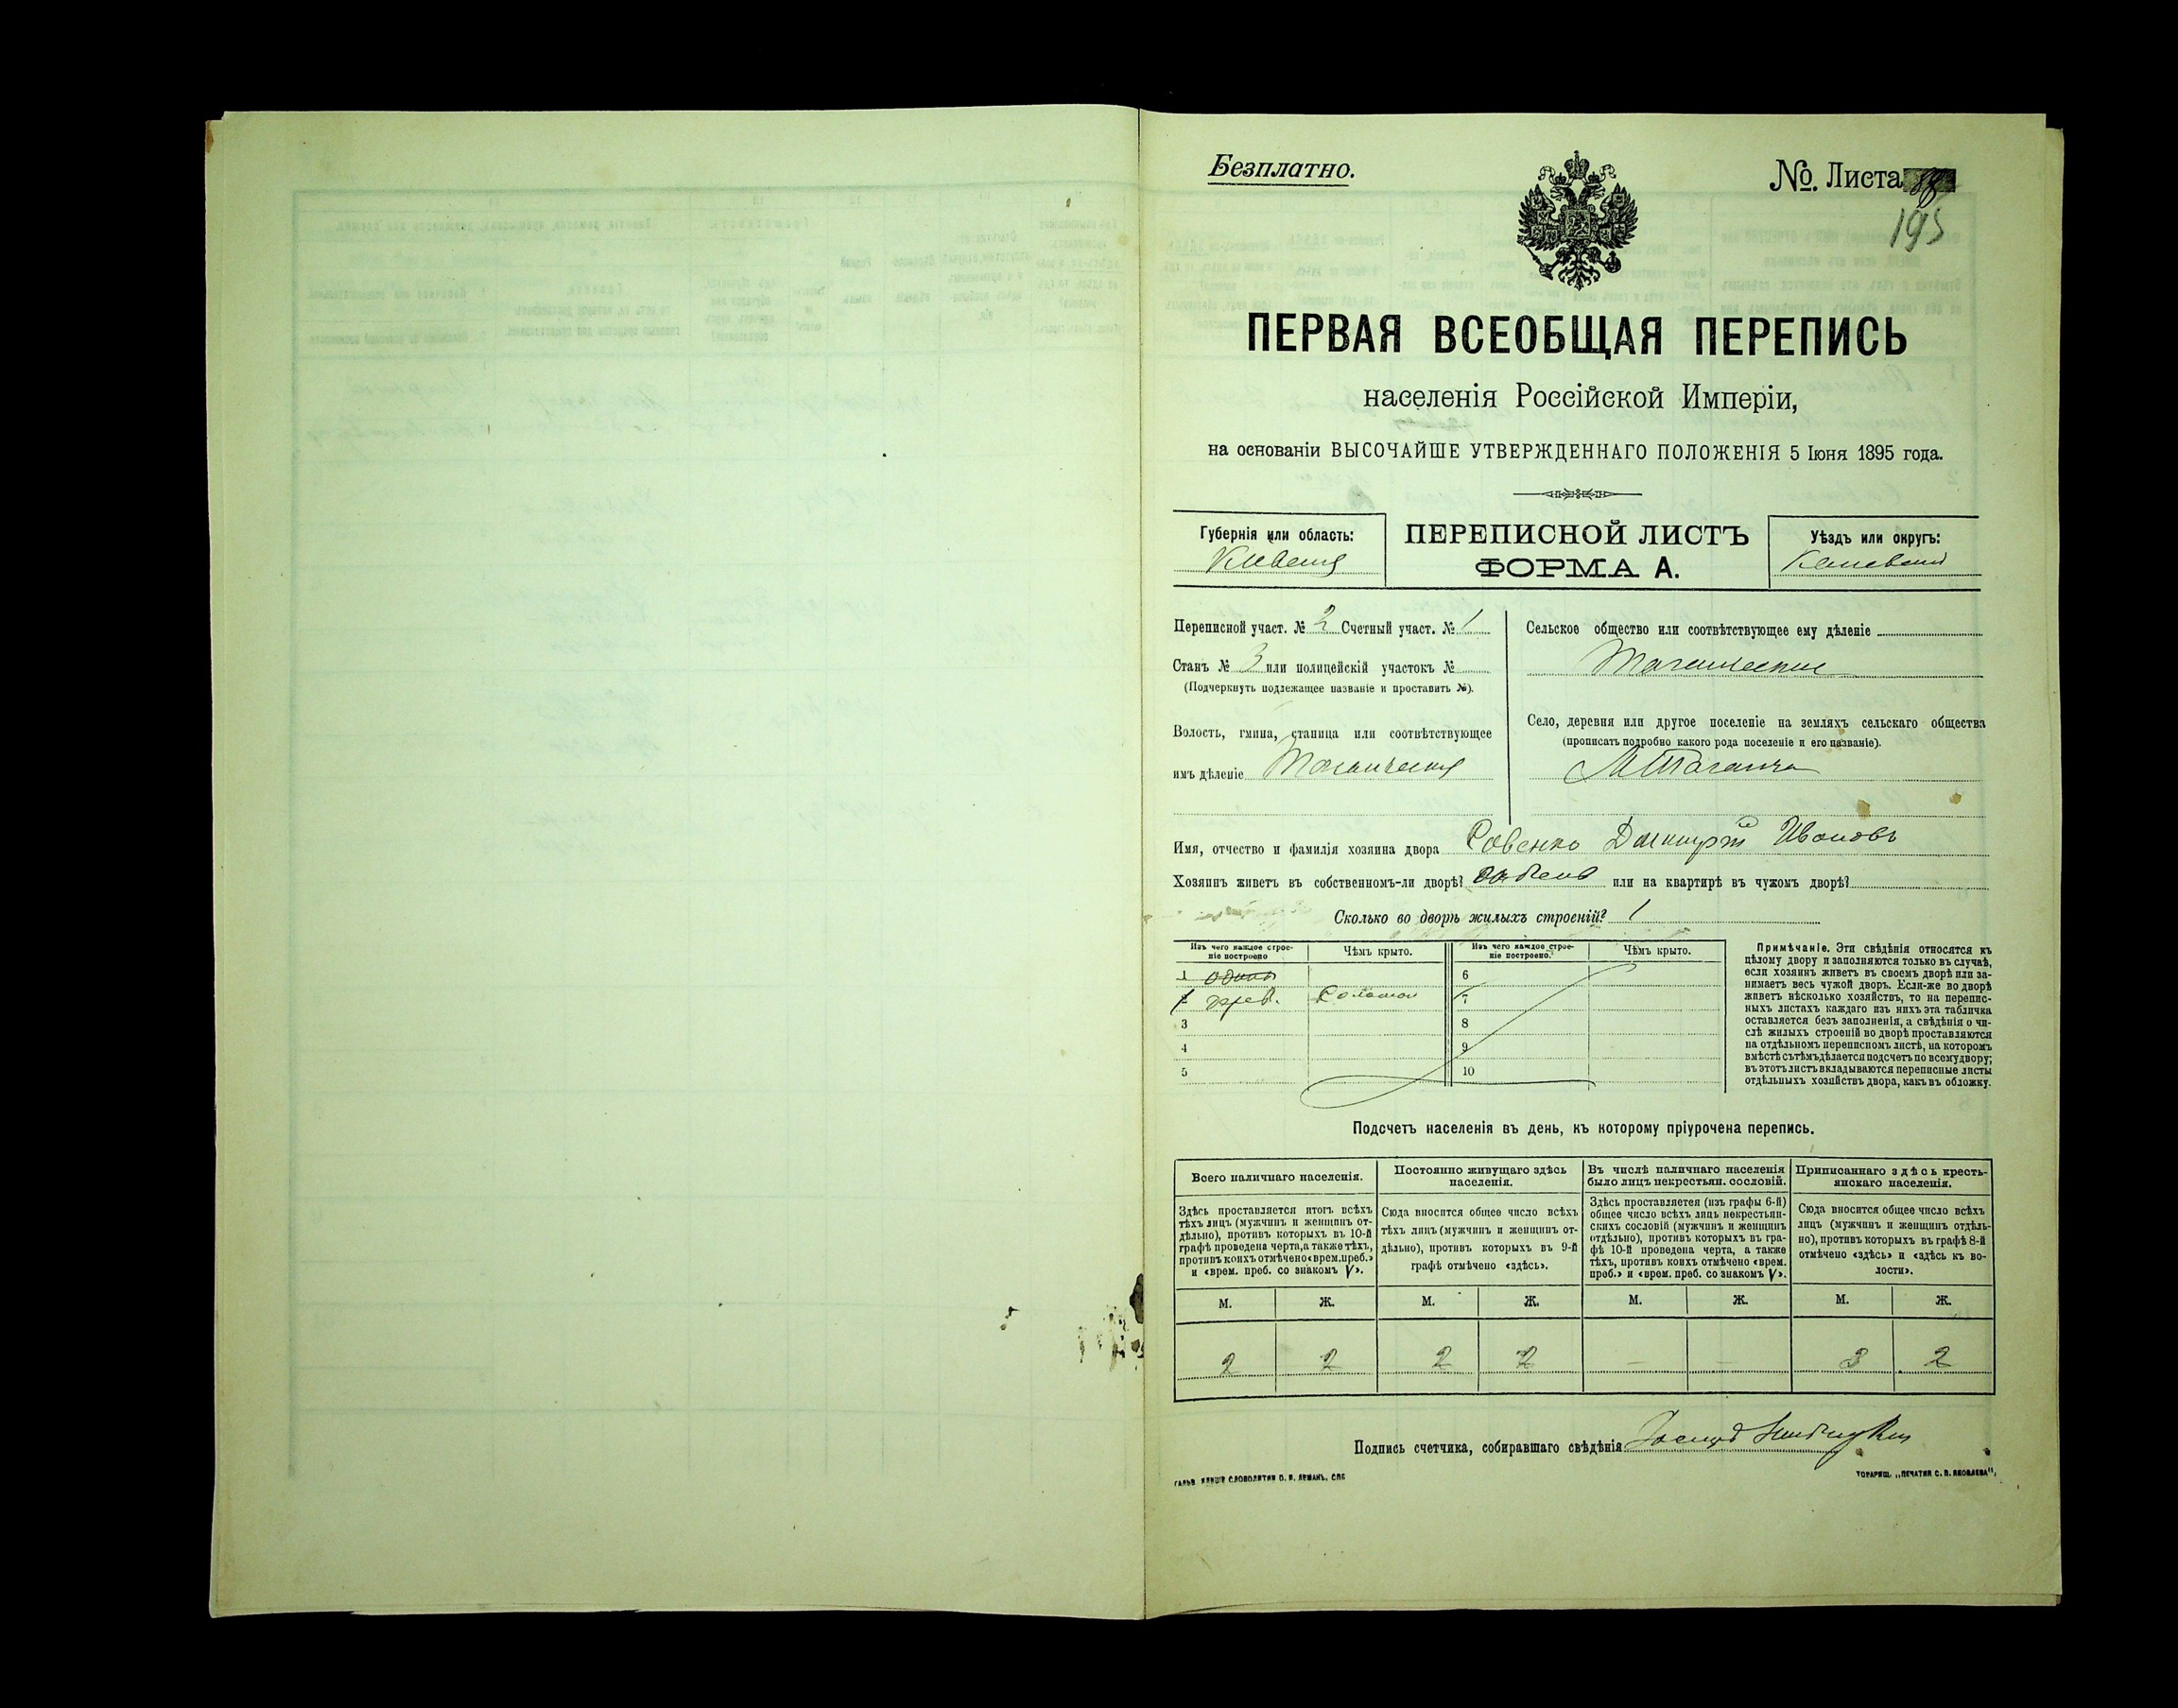 Безплатно.
№. Листа 88
195
ПЕРВАЯ ВСЕОБЩАЯ ПЕРЕПИСЬ
населенія Россійской Имперіи,
на основаніи ВЫСОЧАЙШЕ УТВЕРЖДЕННАГО ПОЛОЖЕНІЯ 5 Іюня 1895 года.
Губернія или область:
Кіевская
ПЕРЕПИСНОЙ ЛИСТЪ
ФОРМА А.
Уѣздъ или округъ:
Каневскій
Переписной участ. № 2 Счетный участ. № 1
Станъ № 3 или полицейскій участокъ №
(Подчеркнуть подлежащее названіе и проставить №).
Волость, гмина, станица или соотвѣтствующее
имъ дѣленіе Таганческая
Сельское общество или соотвѣтствующее ему дѣленіе
Таганческое
Село, деревня или другое поселеніе на земляхъ сельскаго общества
(прописать подробно какого рода поселеніе и его названіе).
М Таганча
Имя, отчество и фамилія хозяина двора Совенко Дмитрій Ивановъ
Хозяинъ живетъ въ собственномъ-ли дворѣ? или на квартирѣ въ чужомъ дворѣ?
Сколько во дворѣ жилыхъ строеній? 1
Изъ чего каждое строе-
ніе построено
Чѣмъ крыто.
Изъ чего каждое строе-
ніе построено.
Чѣмъ крыто.
1 одино
1 дерев. Соломой
3
4
5
6
7
8
9
10
Примѣчаніе. Эти свѣдѣнія относятся къ
цѣлому двору и заполняются только въ случаѣ,
если хозяинъ живетъ въ своемъ дворѣ или за-
нимаетъ весь чужой дворъ. Если-же во дворѣ
живетъ нѣсколько хозяйствъ, то на перепис-
ныхъ листахъ каждаго изъ нихъ эта табличка
оставляется безъ заполненія, а свѣдѣнія о чи-
слѣ жилыхъ строеній во дворѣ проставляются
на отдѣльномъ переписномъ листѣ, на которомъ
вмѣстѣ съ тѣмъ дѣлается подсчетъ по всему двору;
въ этотъ листъ вкладываются переписные листы
отдѣльныхъ хозяйствъ двора, какъ въ обложку.
Подсчетъ населенія въ день, къ которому пріурочена перепись.
Всего наличнаго населенія.
Здѣсь проставляется итогъ всѣхъ
тѣхъ лицъ (мужчинъ и женщинъ от-
дѣльно), противъ которыхъ въ 10-й
графѣ проведена черта, а также тѣхъ,
противъ коихъ отмѣчено «врем. преб.»
и «врем. преб. со знакомъ V».
Постоянно живущаго здѣсь
населенія.
Сюда вносится общее число всѣхъ
тѣхъ лицъ (мужчинъ и женщинъ от-
дѣльно), противъ которыхъ въ 9-й
графѣ отмѣчено «здѣсь».
Въ числѣ наличнаго населенія
было лицъ некрестьян. сословій.
Здѣсь проставляется (изъ графы 6-й)
общее число всѣхъ лицъ некрестьян-
скихъ сословій (мужчинъ и женщинъ
отдѣльно), противъ которыхъ въ гра-
фѣ 10-й проведена черта, а также
тѣхъ, противъ коихъ отмѣчено «врем.
преб.» и «врем. преб. со знакомъ V».
Приписаннаго здѣсь кресть-
янскаго населенія.
Сюда вносится общее число всѣхъ
лицъ (мужчинъ и женщинъ отдѣль-
но), противъ которыхъ въ графѣ 8-й
отмѣчено «здѣсь» и «здѣсь къ во-
лости».
М. Ж. М. Ж. М. Ж. М. Ж.
2 2 2 2 — — 3 2
Подпись счетчика, собиравшаго свѣдѣнія
ГАЛЬВ. КЛИШЕ СЛОВОЛИТНИ О. И. ЛЕМАНЪ, СПБ
ТОВАРИЩ. „ПЕЧАТНЯ С. П. ЯКОВЛЕВА".